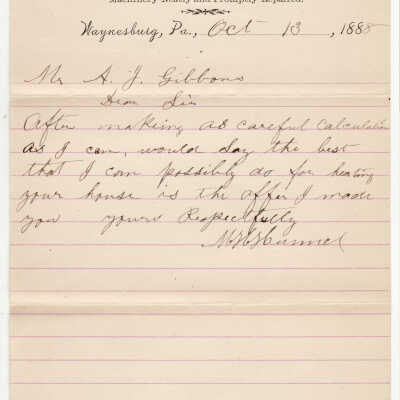 Machinery Neatly and Promptly Repaired.
Waynesburg, Pa., Oct 13, 1888
Mr A. J. Gibbons
Dear Sir
After making as careful calculation
as I can, would say the best
that I can possibly do for heating
your house is the offer I made
you yours Respectfully